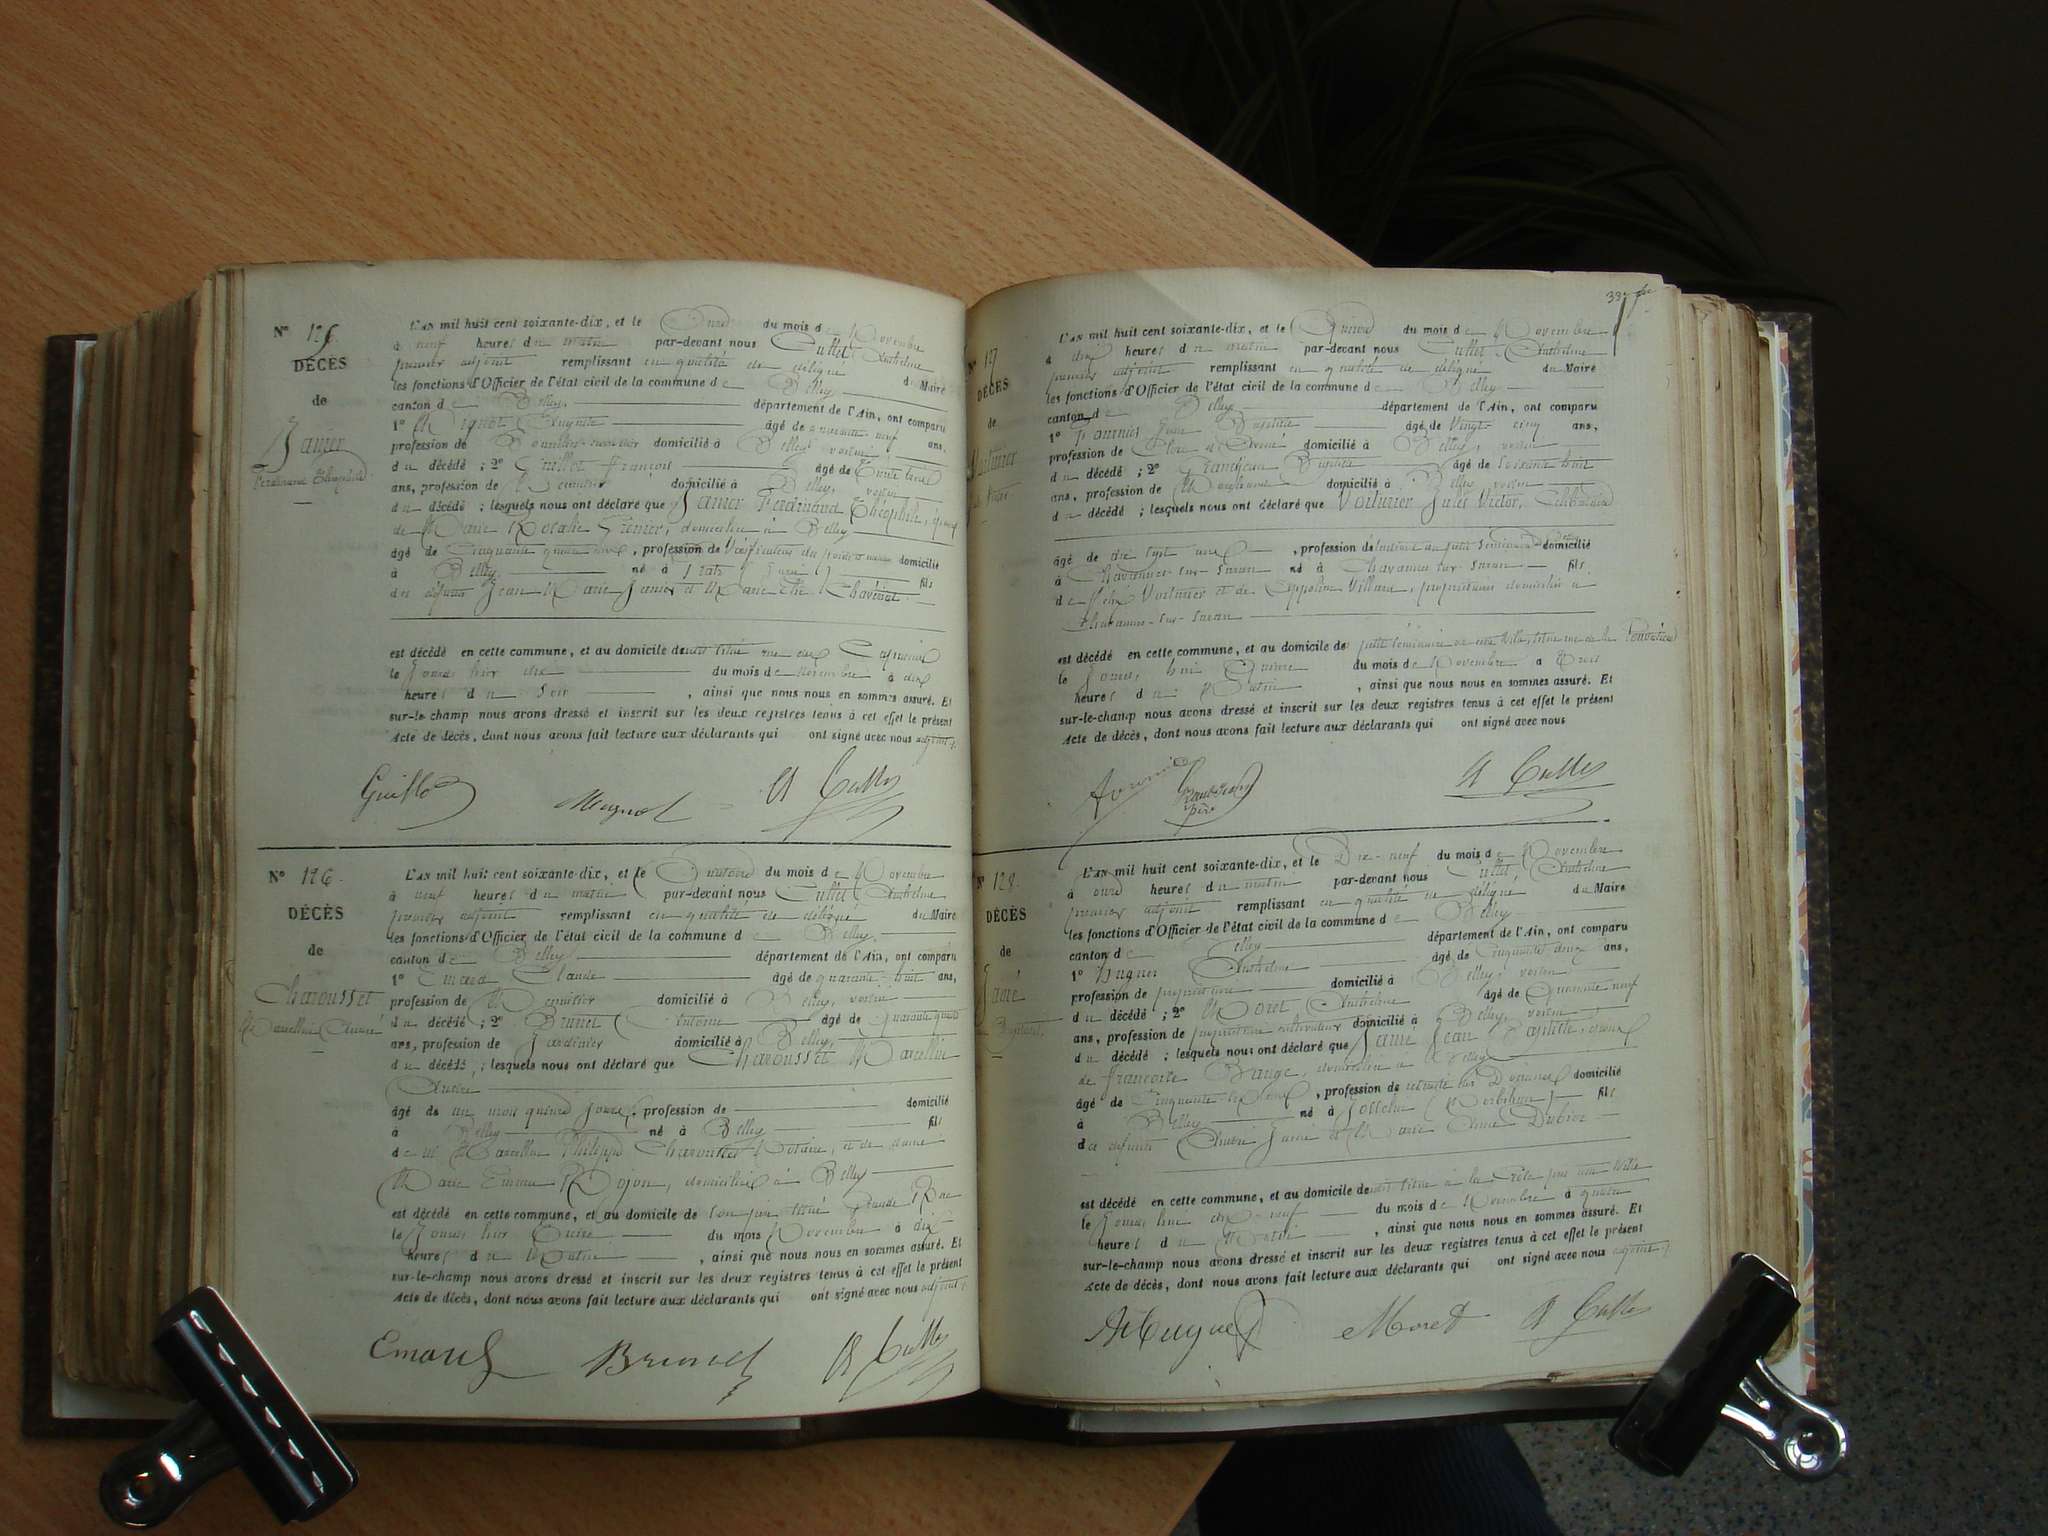 N° 125.
DÉCÈS
de
Janier
Ferdinand Théophile
L'AN mil huit cent soixante-dix, et le Onze du mois de Novembre
à neuf heures du matin par-devant nous Cullet Anthelme
premier adjoint remplissant en qualité de délégué du Maire
les fonctions d'Officier de l'état civil de la commune de Belley
canton de Belley département de l'Ain, ont comparu
1° Auguste âgé de quarante neuf ans,
profession de domicilié à Belley, voisin
du décédé ; 2° Guillot François âgé de trente
ans, profession de Menuisier domicilié à Belley, voisin
du décédé ; lesquels nous ont déclaré que Janier Ferdinand Théophile, époux
de Marie Rosalie Grenier, domicilié à Belley
âgé de Cinquante quatre ans, profession de Vérificateur des domicilié
à Belley né à Pratz (Jura) fils
du défunt Jean Marie Janier et Marie
est décédé en cette commune, et au domicile de situé rue des Capucins
le Jour d'hier dix du mois de novembre à dix
heures du soir, ainsi que nous nous en sommes assuré. Et
sur-le-champ nous avons dressé et inscrit sur les deux registres tenus à cet effet le présent
Acte de décès, dont nous avons fait lecture aux déclarants qui ont signé avec nous adjoint.
Guillot Mugnot A Cullet
N° 126.
DÉCÈS
de
Charousset
Marcellin André
L'AN mil huit cent soixante-dix, et le Quatorze du mois de Novembre
à neuf heures du matin par-devant nous Cullet Anthelme
premier adjoint remplissant en qualité de délégué du Maire
les fonctions d'Officier de l'état civil de la commune de Belley
canton de Belley département de l'Ain, ont comparu
1° Emard Claude âgé de quarante huit ans,
profession de Menuisier domicilié à Belley, voisin
du décédé ; 2° Brunet Antoine âgé de quarante quatre
ans, profession de Jardinier domicilié à Belley,
du décédé ; lesquels nous ont déclaré que Charousset Marcellin
André
âgé de un mois quinze jours, profession de domicilié
à Belley né à Belley fils
de M. Marcellin Philippe Charousset Notaire, et de dame
Marie Emma Rojon, domiciliés à Belley
est décédé en cette commune, et au domicile de son père situé Grande Rue
le Jour d'hier treize du mois Novembre à dix
heures du Matin, ainsi que nous nous en sommes assuré. Et
sur-le-champ nous avons dressé et inscrit sur les deux registres tenus à cet effet le présent
Acte de décès, dont nous avons fait lecture aux déclarants qui ont signé avec nous adjoint.
Emard Brunet A Cullet
N° 127
DÉCÈS
de
Voilurier
L'AN mil huit cent soixante-dix, et le Quinze du mois de Novembre
à dix heures du matin par-devant nous Cullet Anthelme
premier adjoint remplissant en qualité de délégué du Maire
les fonctions d'Officier de l'état civil de la commune de Belley
canton de Belley département de l'Ain, ont comparu
1° Fournier Jean Baptiste âgé de Vingt-cinq ans,
profession de Clerc d'Avoué domicilié à Belley, voisin
du décédé ; 2° Grandjean Baptiste âgé de soixante huit
ans, profession de domicilié à Belley voisin
du décédé ; lesquels nous ont déclaré que Voilurier Jules Victor, Célibataire
âgé de dix sept ans, profession de étudiant au petit Séminaire domicilié
à Chavannes-sur-Suran né à Chavannes sur Suran fils
de Félix Voilurier et de Hippolite Villard, propriétaires domiciliés à
Chavannes-sur-Suran
est décédé en cette commune, et au domicile de petit Séminaire de cette Ville,
le Jour, hui Quinze du mois de Novembre à trois
heures du Matin, ainsi que nous nous en sommes assuré. Et
sur-le-champ nous avons dressé et inscrit sur les deux registres tenus à cet effet le présent
Acte de décès, dont nous avons fait lecture aux déclarants qui ont signé avec nous
Fournier Grandjean père A Cullet
N° 128.
DÉCÈS
de
Jamé
Baptiste
L'AN mil huit cent soixante-dix, et le Dix-neuf du mois de Novembre
à onze heures du matin par-devant nous Cullet, Anthelme
premier adjoint remplissant en qualité de délégué du Maire
les fonctions d'Officier de l'état civil de la commune de Belley
canton de Belley département de l'Ain, ont comparu
1° Hugues Anthelme âgé de Cinquante deux ans,
profession de propriétaire domicilié à Belley, voisin
du décédé ; 2° Moret Anthelme âgé de Quarante neuf
ans, profession de propriétaire cultivateur domicilié à Belley, voisin
du décédé ; lesquels nous ont déclaré que Jamé Jean Baptiste, époux
de Françoise Bauge, domicilié à Belley
âgé de Cinquante ans, profession de retraité des Douanes domicilié
à Belley né à Josselin (Morbihan) fils
des défunts André Jamé et Marie Anne Dubroc
est décédé en cette commune, et au domicile de
le Jour hui dix-neuf du mois de Novembre à quatre
heures du Matin, ainsi que nous nous en sommes assuré. Et
sur-le-champ nous avons dressé et inscrit sur les deux registres tenus à cet effet le présent
Acte de décès, dont nous avons fait lecture aux déclarants qui ont signé avec nous adjoint.
A Hugues Moret A Cullet